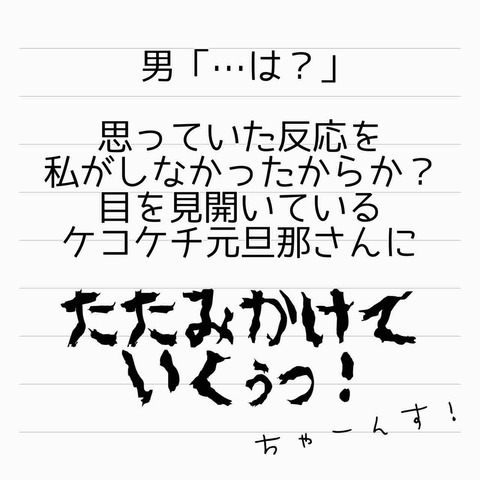 男「…は？」
思っていた反応を
私がしなかったからか？
目を見開いている
ケコケチ元旦那さんに
たたみかけて
いくぅっ！
ちゃーんす！